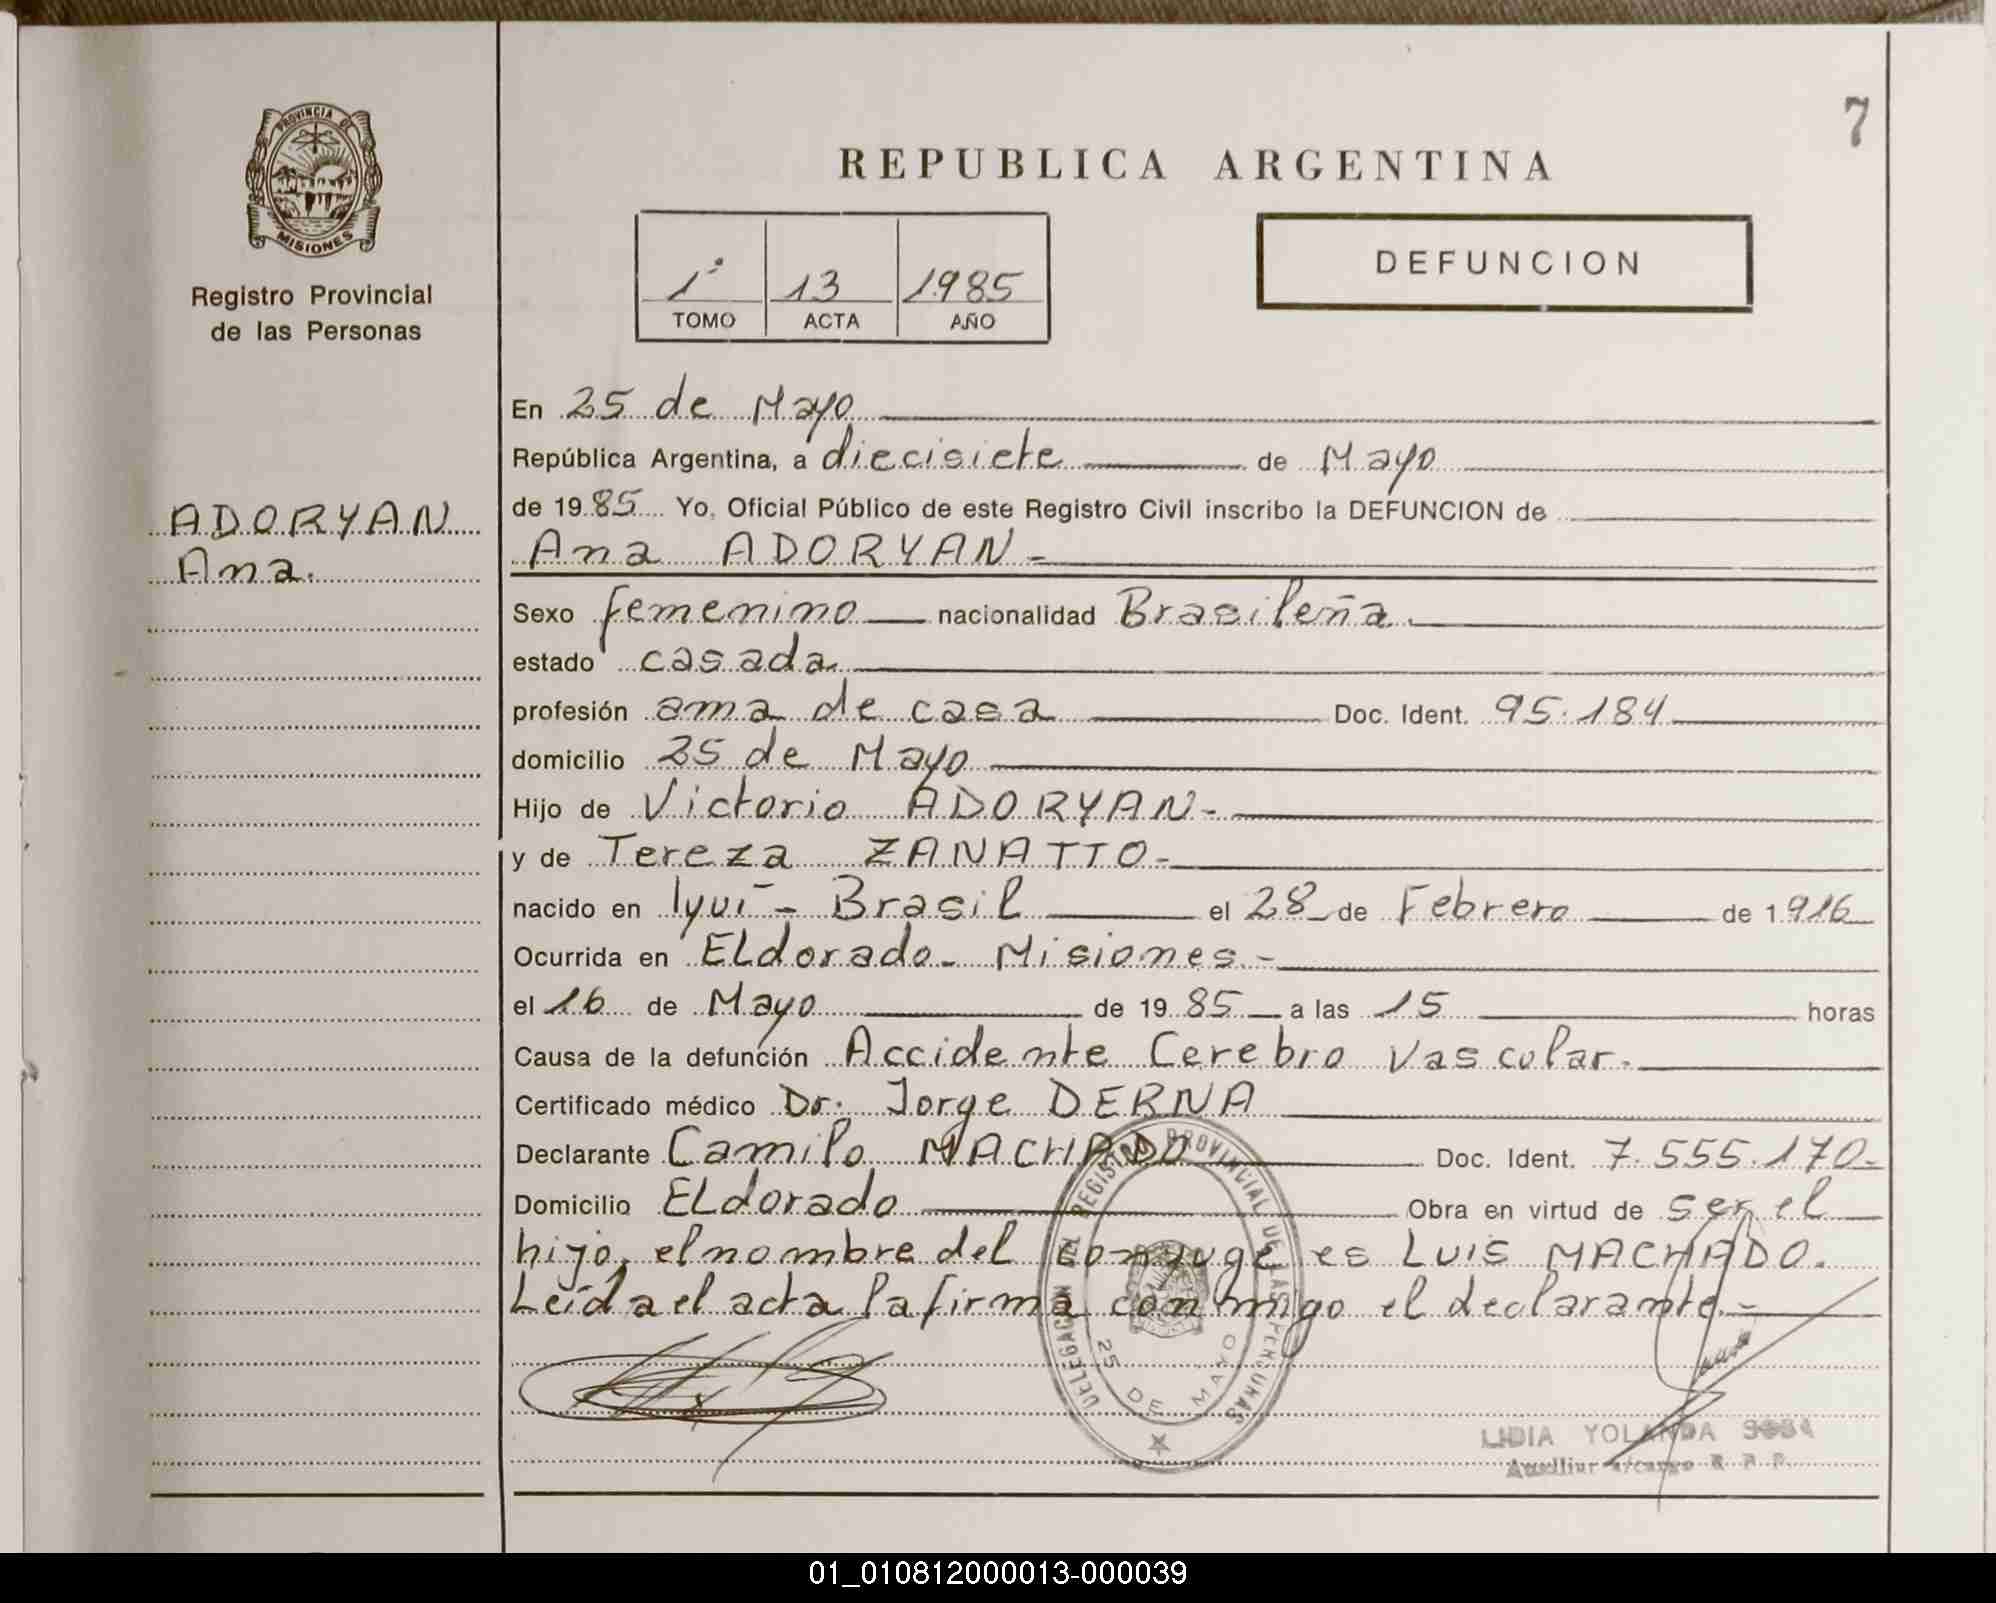 PROVINCIA DE
MISIONES
Registro Provincial
de las Personas
ADORYAN
Ana.
7
REPUBLICA ARGENTINA
1º 13 1985
TOMO ACTA AÑO
DEFUNCION
En 25 de Mayo
República Argentina, a diecisiete de Mayo
de 1985 Yo, Oficial Público de este Registro Civil inscribo la DEFUNCION de
Ana ADORYAN-
Sexo femenino nacionalidad Brasileña.
estado casada
profesión ama de casa Doc. Ident. 95.184
domicilio 25 de Mayo
Hijo de Victorio ADORYAN-
y de Tereza ZANATTO-
nacido en Iyuí - Brasil el 28 de Febrero de 1916
Ocurrida en ELdorado- Misiones.-
el 16 de Mayo de 1985 a las 15 horas
Causa de la defunción Accidente Cerebro Vascular.
Certificado médico Dr. Jorge DERNA
Declarante Camilo MACHADO Doc. Ident. 7.555.170-
Domicilio ELdorado Obra en virtud de ser el
hijo, el nombre del conyuge es LUIS MACHADO.
Leída el acta la firma conmigo el declarante.-
DELEGACION DEL REGISTRO PROVINCIAL DE LAS PERSONAS
25 DE MAYO
LIDIA YOLANDA
Auxiliar a/cargo R P P
01_010812000013-000039